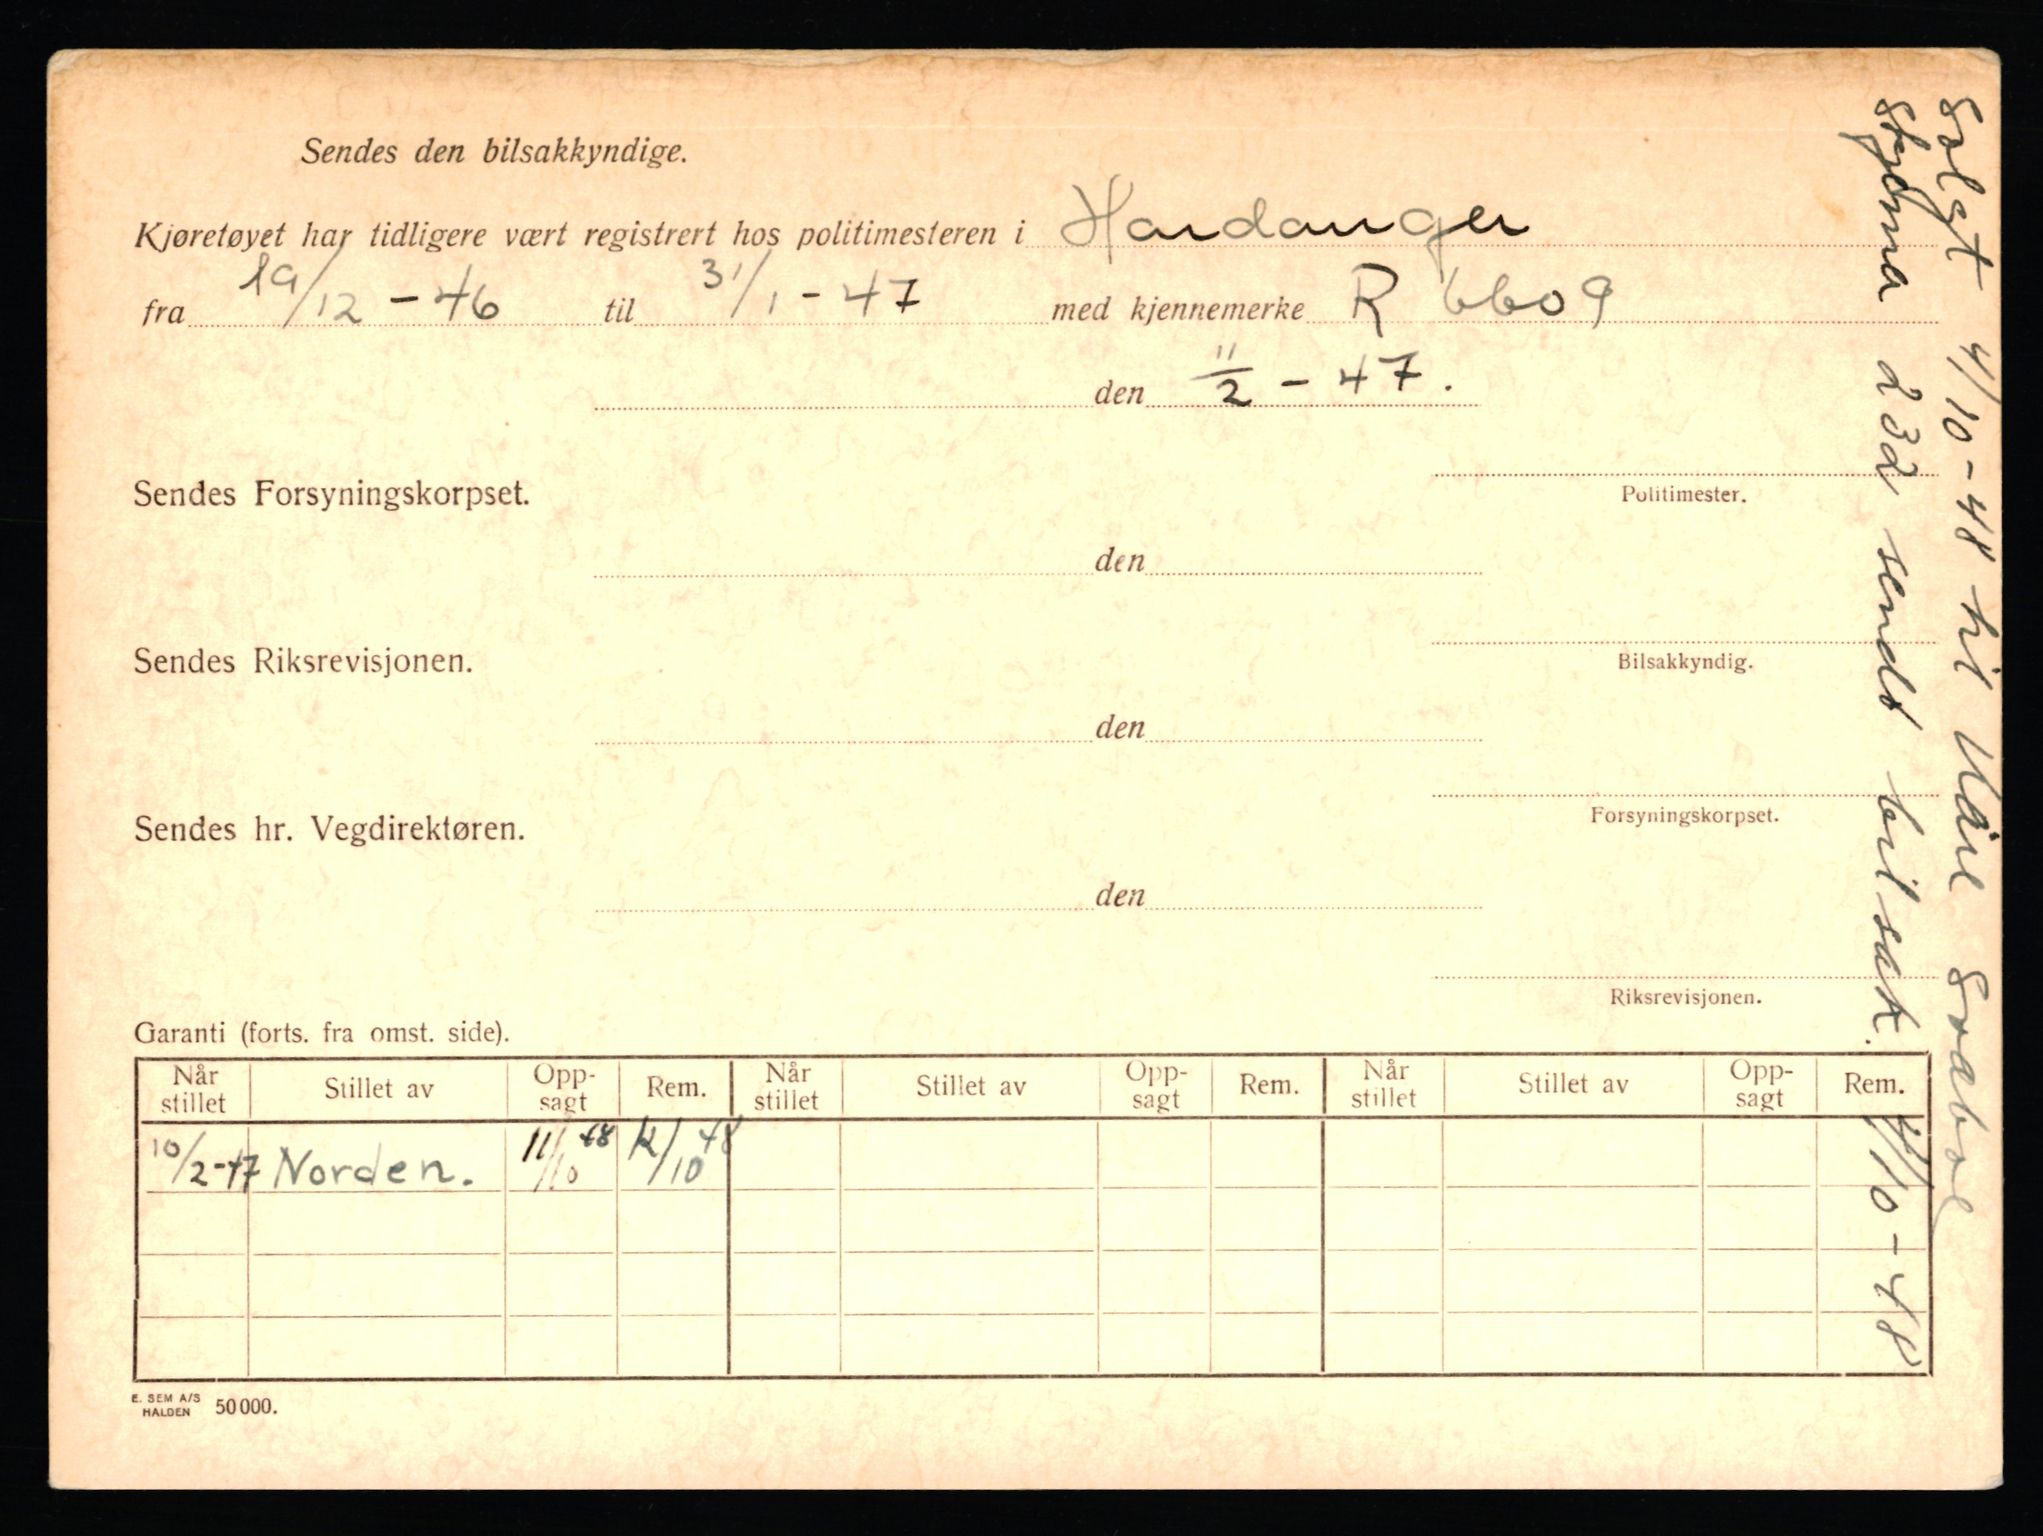 Sendes den bilsakkyndige.
Kjøretøyet har tidligere vært registrert hos politimesteren i Hardanger
fra 19/12 - 46 til 31/1 - 47 med kjennemerke R 6609
den 11/2 - 47.
Politimester.
Sendes Forsyningskorpset.
den
Bilsakkyndig.
Sendes Riksrevisjonen.
den
Forsyningskorpset.
Sendes hr. Vegdirektøren.
den
Riksrevisjonen.
Garanti (forts. fra omst. side).
Når stillet Stillet av Opp-sagt Rem. Når stillet Stillet av Opp-sagt Rem. Når stillet Stillet av Opp-sagt Rem.
10/2-47 Norden. 11/10 48 12/10 48
E. SEM A/S
HALDEN 50000.
Solgt 4/10-48 til Kåre
skjema 232 sendt bilsak. 4/10-48